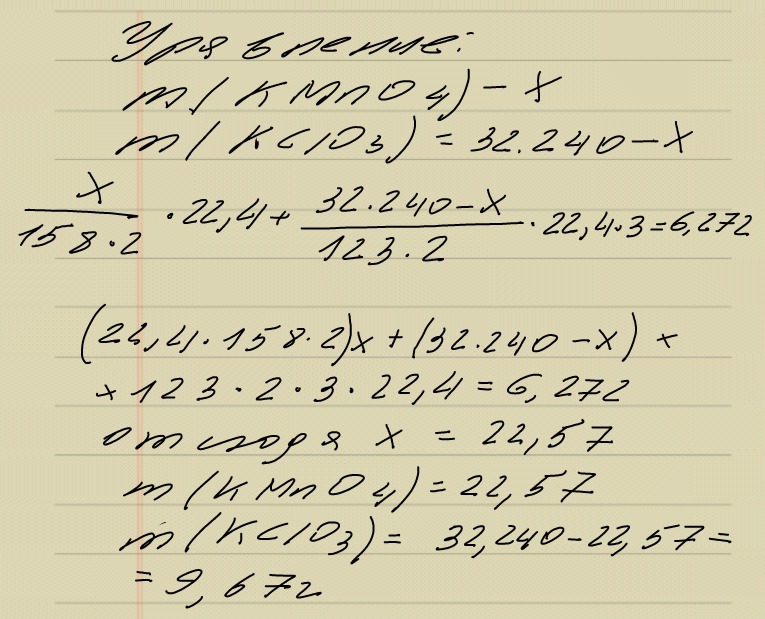 Уравнение:
m(KMnO4) – X
m(KClO3) = 32.240 – X
X/158·2 · 22,4 + 32.240 – X/123·2 · 22,4·3 = 6,272
(22,4·158·2)x + (32.240 – x) ×
× 123·2·3·22,4 = 6,272
отсюда x = 22,57
m(KMnO4) = 22,57
m(KClO3) = 32,240 – 22,57 =
= 9,67г